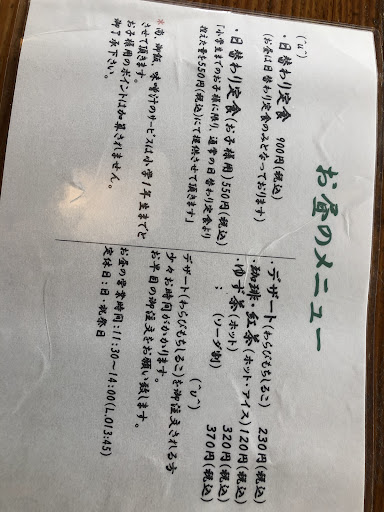 お昼のメニュー
(^u^)
・日替わり定食　900円(税込)
(お昼は日替わり定食のみとなっております)
・日替わり定食(お子様用)550円(税込)
「小学生までのお子様に限り、通常の日替わり定食より
控えた量を550円(税込)にて提供させて頂きます」
※尚、御飯、味噌汁のサービスは小学1年生までと
させて頂きます。
お子様用のポイントは加算されません。
御了承下さい。
・デザート(わらびもちしるこ)　230円(税込)
・珈琲・紅茶(ホット・アイス)120円(税込)
・ゆず茶(ホット)　320円(税込)
：　(ソーダ割)　370円(税込)
(^u^)
デザート(わらびもちしるこ)を御注文される方
少々お時間がかかります。
お早目の御注文をお願い致します。
お昼の営業時間：11:30～14:00(L.O13:45)
定休日：日・祝祭日